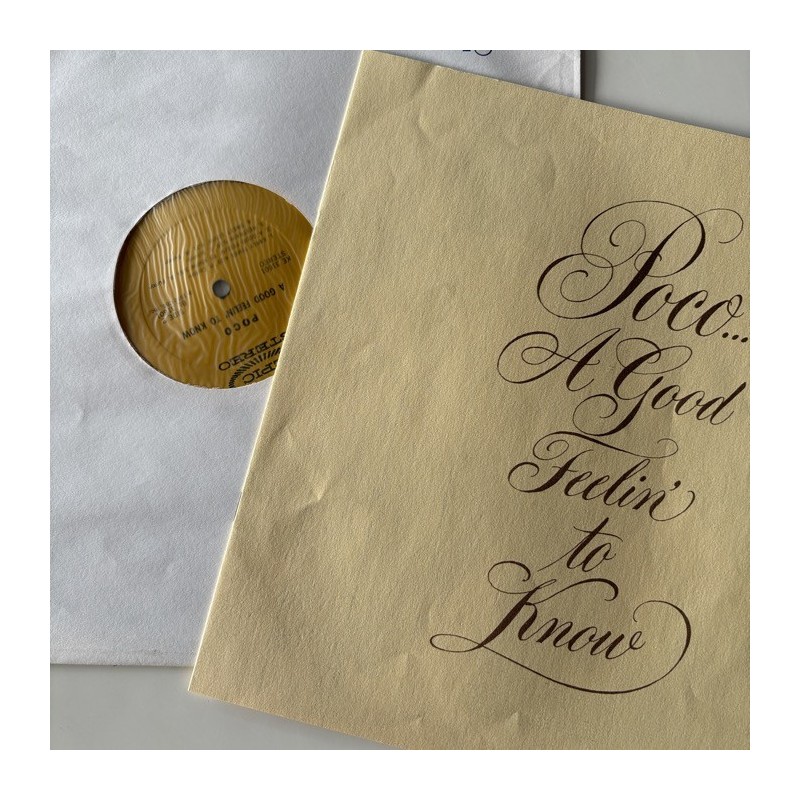 Poco...
A Good
Feelin'
to
Know
EPIC
STEREO
POCO
A GOOD FEELIN' TO KNOW
STEREO